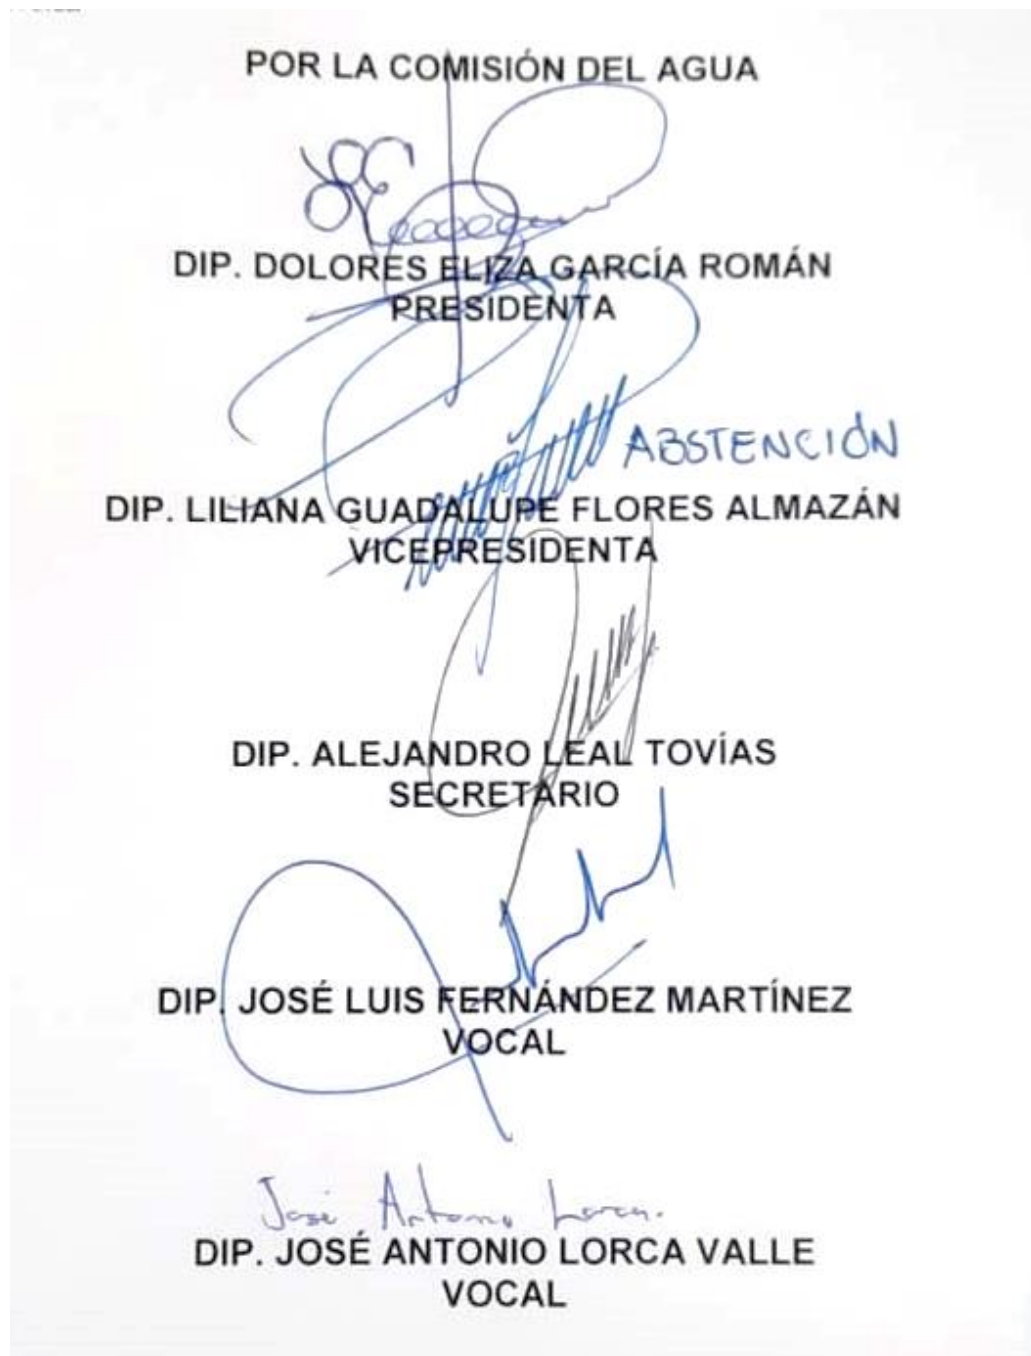 POR LA COMISIÓN DEL AGUA
DIP. DOLORES ELIZA GARCÍA ROMÁN
PRESIDENTA
ABSTENCIÓN
DIP. LILIANA GUADALUPE FLORES ALMAZÁN
VICEPRESIDENTA
DIP. ALEJANDRO LEAL TOVÍAS
SECRETARIO
DIP. JOSÉ LUIS FERNÁNDEZ MARTÍNEZ
VOCAL
José Antonio Lorca.
DIP. JOSÉ ANTONIO LORCA VALLE
VOCAL